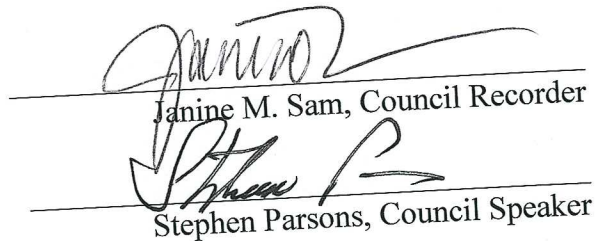 Janine M. Sam, Council Recorder
Stephen Parsons, Council Speaker